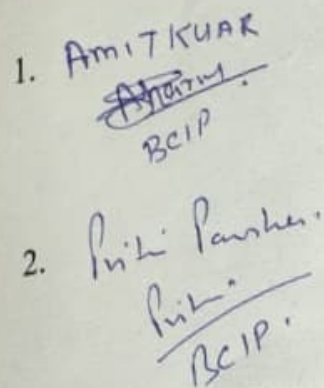 1. AMIT KUAR
BCIP.
2. Priti
Priti.
BCIP.